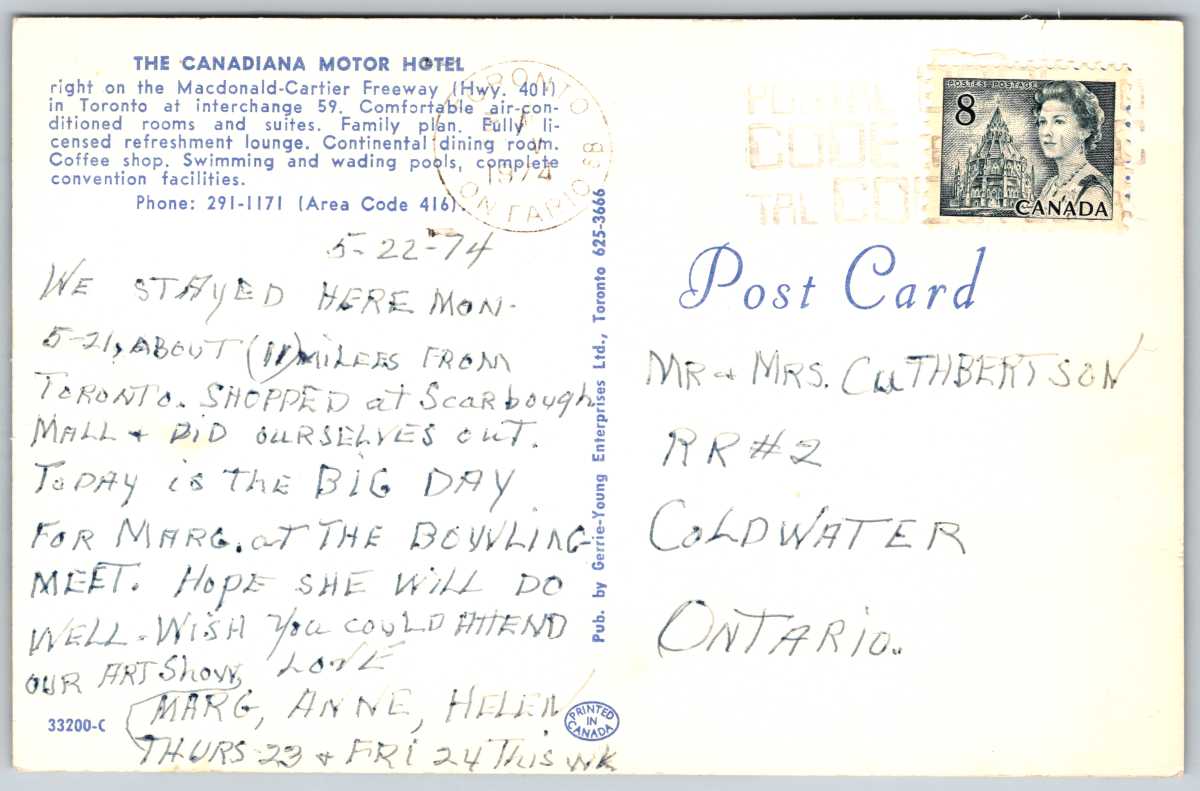 THE CANADIANA MOTOR HOTEL
right on the Macdonald-Cartier Freeway (Hwy. 401)
in Toronto at interchange 59. Comfortable air-con-
ditioned rooms and suites. Family plan. Fully li-
censed refreshment lounge. Continental dining room.
Coffee shop. Swimming and wading pools, complete
convention facilities.
Phone: 291-1171 (Area Code 416).
5-22-74
WE STAYED HERE MON-
5-21, ABOUT (11) MILES FROM
TORONTO. SHOPPED at Scarbough
MALL + DID OURSELVES OUT.
TODAY is the BIG DAY
FOR MARG. at THE BOWLING-
MEET. Hope SHE WILL DO
WELL. WISH You COULD ATTEND
OUR ART Show, LOVE
MARG, ANNE, HELEN
THURS-23 + FRI 24 This WK
33200-C
PRINTED
IN
CANADA
Pub. by Gerrie-Young Enterprises Ltd., Toronto 625-3666
TORONTO
1974
ONTARIO
POSTAL
CODE
TAL CO
POSTES POSTAGE
8
CANADA
Post Card
MR + MRS. CUTHBERTSON
RR#2
COLDWATER
ONTARIO.